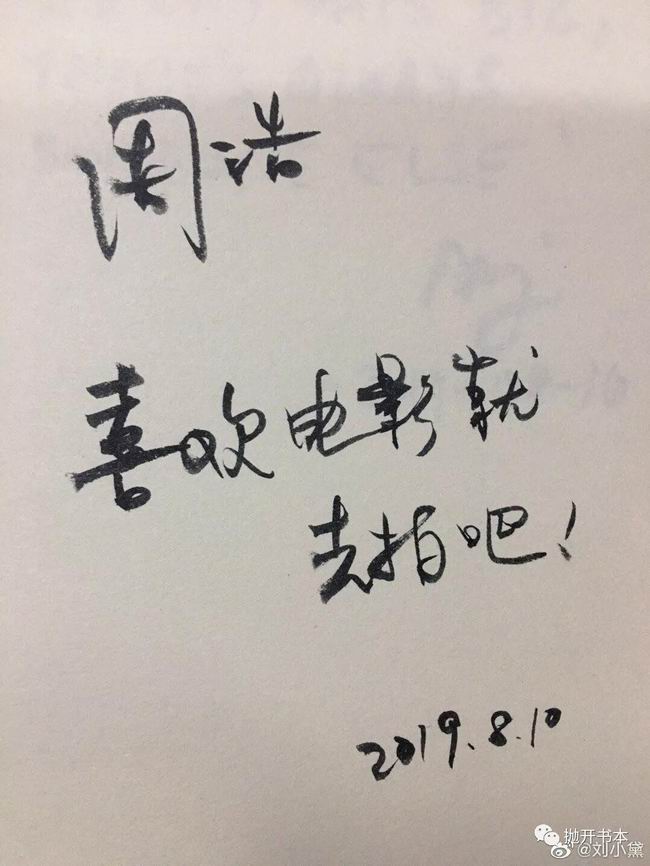 周浩
喜欢电影就
去拍吧！
2019.8.10
抛开书本
@刘小黛